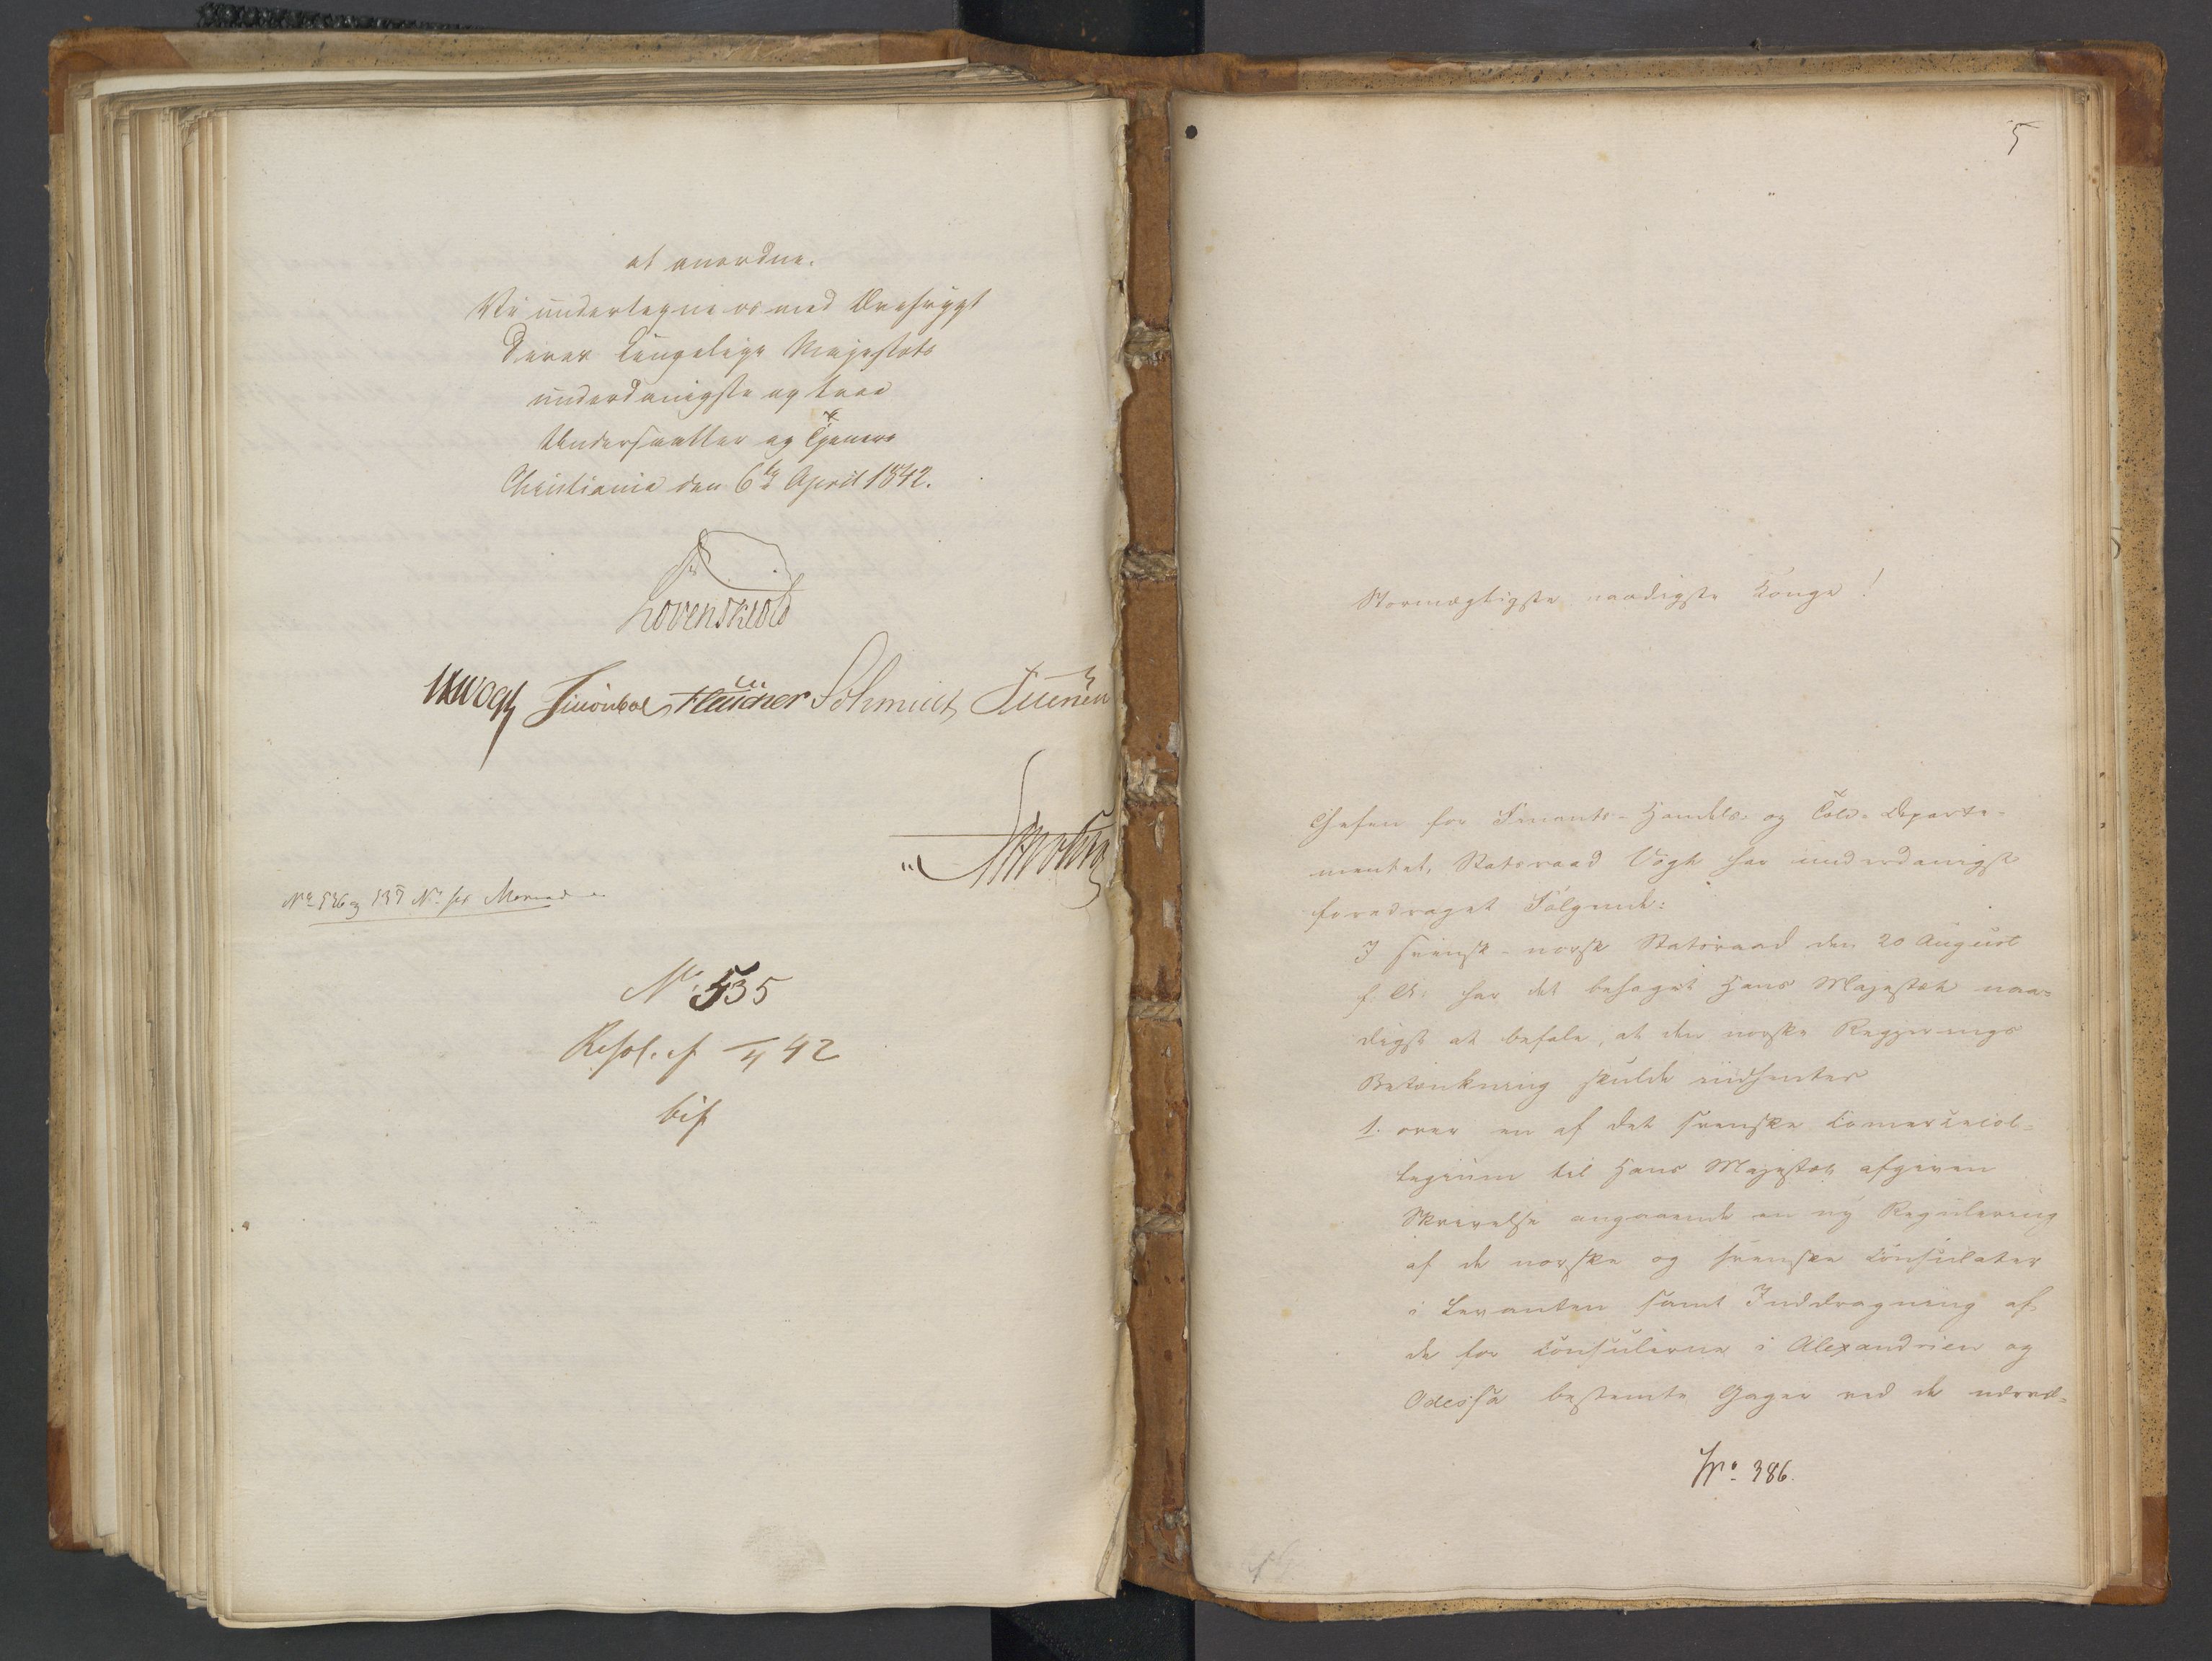 at anordne.
Vi undertegne os med Ærefrygt
Deres Kongelige Majestæts
underdanigste og troe
Undersaatter og Tjenere
Christiania den 6te April 1842.
Løvenskiold
Vogt Sibbern Schmidt Diriks
No 536 og 537
No. 535
Resol. af 4 42
bif
5
Stormægtigste naadigste Konge!
Chefen for Finants- Handels- og Told-Departe-
mentet, Statsraad Vogt har underdanigst
foredraget Følgende:
I svensk-norsk Statsraad den 20 August
f. A. har det behaget Hans Majestæt naa-
digst at befale, at den norske Regjerings
Betænkning skulde indhentes
1. over en af det svenske Commercecol-
legium til Hans Majestæt afgiven
Skrivelse angaaende en ny Regulering
af de norske og svenske Consulater
i Levanten samt Inddragning af
de for Consulerne i Alexandrien og
Odessa bestemte Gager ved de nærvæ-
No. 386.